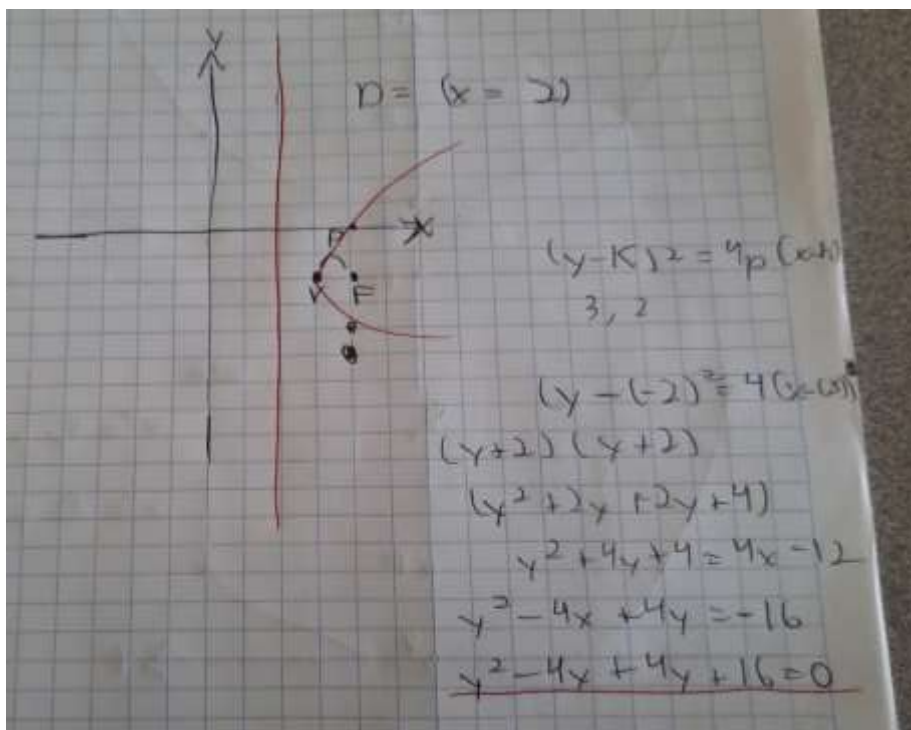 Y
D = (x = 2)
X
P
V F
(y-K)² = 4p (x-h)
3, 2
(y-(-2)² = 4(x-(3))
(y+2) (y+2)
(y²+2y+2y+4)
y²+4y+4=4x-12
y²-4x+4y=-16
y²-4x+4y+16=0